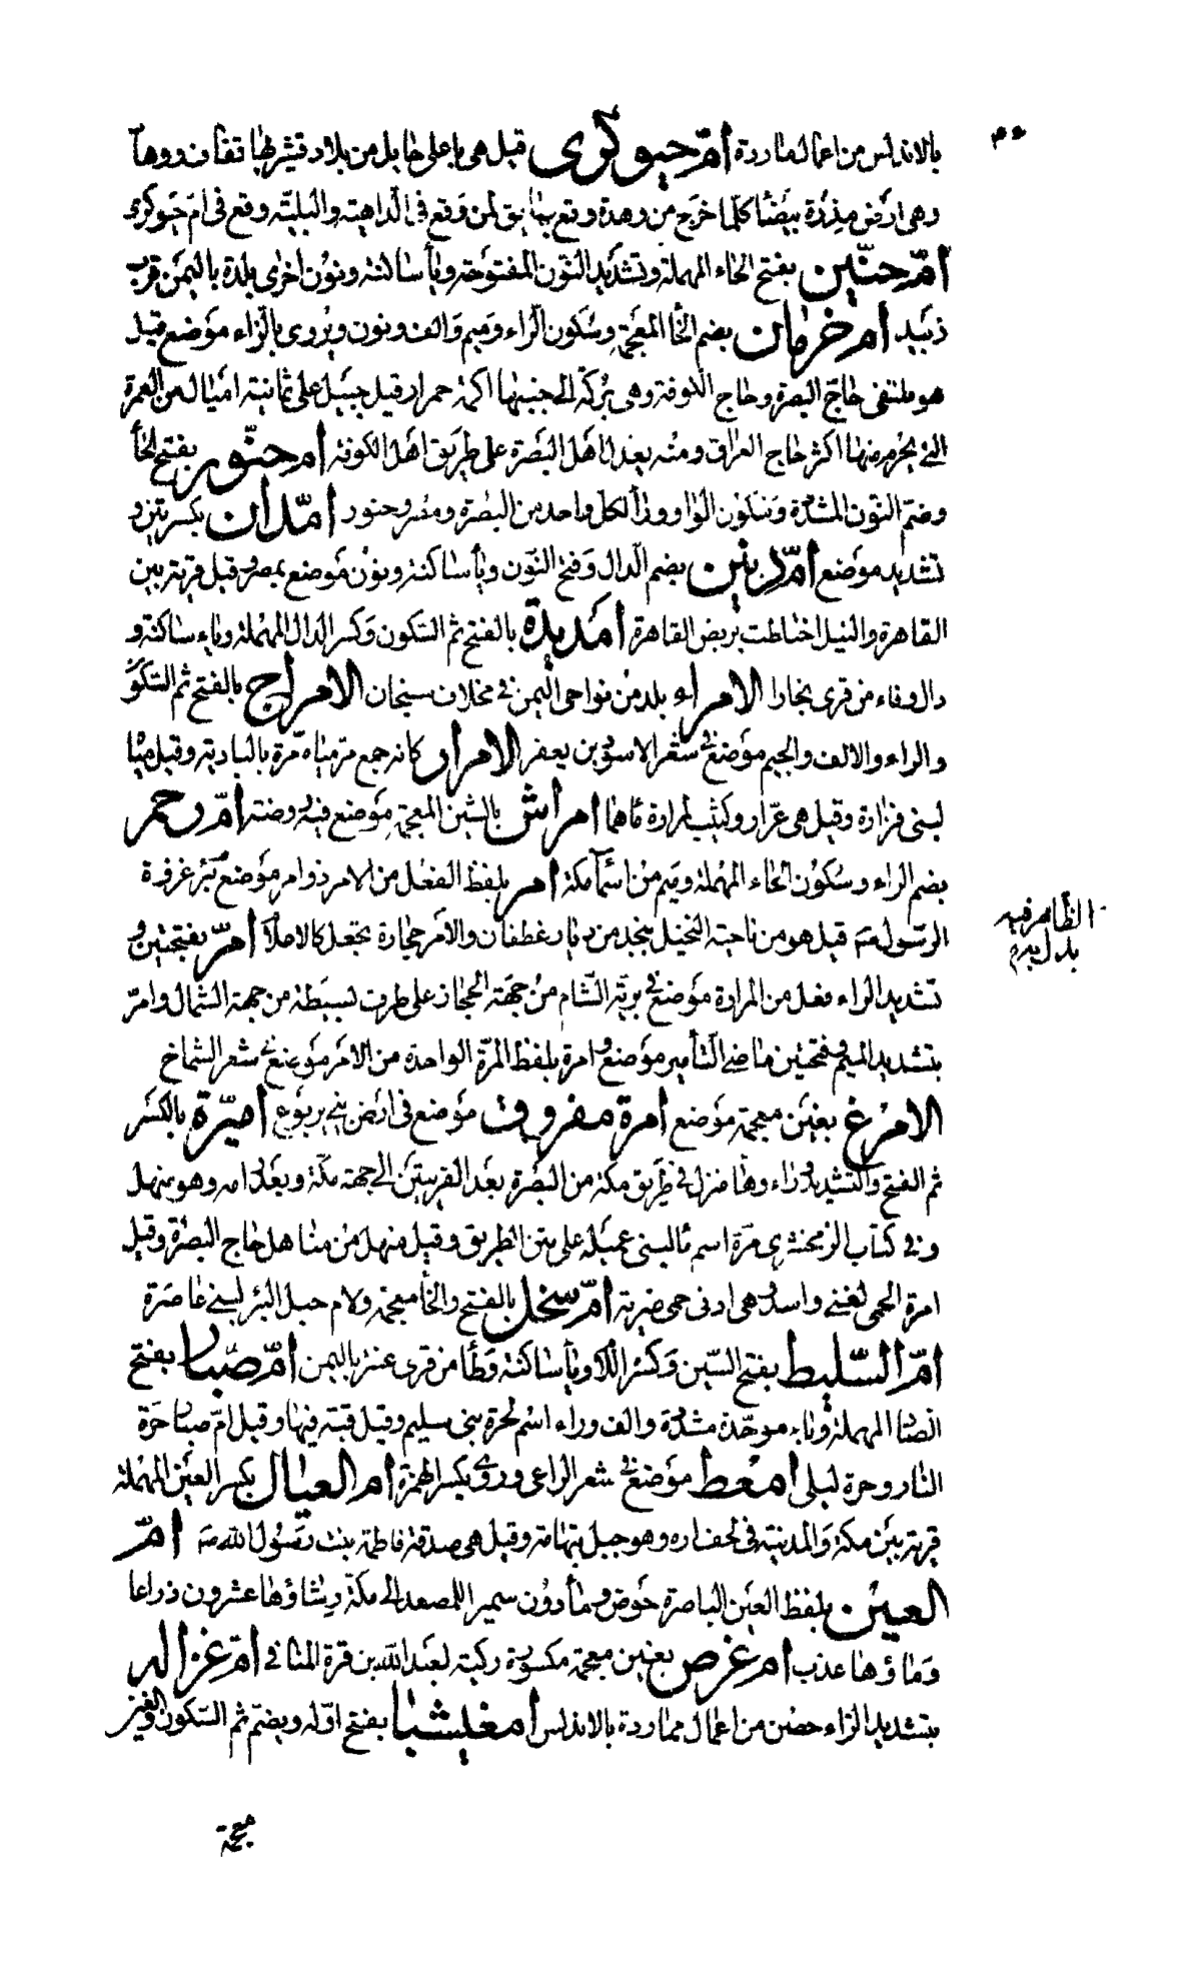 بالاندلس من اعمال ماردة امّ حبوكرى قيل هي باعلى حايل من بلاد قشير بها قفاف ووهاد
وهي ارض مدرة بيضا كلما خرج من وهدة وقع يقال لمن وقع في الداهية والبلية وقع في ام حبوكرى
امّ حنّين بفتح الحاء المهملة وتشديد النون المفتوحة ويأ ساكنة ونون اخرى بلدة باليمن قرب
زبيد ام خرمان بضم الخا المعجمة وسكون الراء وميم والف ونون ويروى بالزاء موضع قيل
هو ملتقى حاج البصرة وحاج الكوفة وهي بركة الى جنبها اكمة حمرا وقيل جبيل على ثمانية اميال من العمرة
التي يحرم منها اكثر حاج العراق ومنه يعدل اهل البصرة على طريق اهل الكوفة ام خنّور بفتح الخأ
وضم النون المشددة وسكون الواو ورا لكل واحد من البصرة ومصر وخنور امّدان بكسرتين و
تشديد موضع امّ دنين بضم الدال وفتح النون ويأ ساكنة ونون موضع بمصر وقيل قرية بين
القاهرة والنيل اختلطت بربض القاهرة امديدة بالفتح ثم السكون وكسر الدال المهملة وياء ساكنة و
دال وهاء من قرى بخارا الامراء بلد من نواحي اليمن في مخلاف سنحان الامراج بالفتح ثم السكون
والراء والالف والجيم موضع في شعر الاسود بن يعفر الامرار كانه جمع مر مياه مرة بالبادية وقيل مياه
لبني فزارة وقيل هي عرّار وكنيب لمرارة مائها امراش بالشين المعجمة موضع فيه روضة امّ رحم
بضم الراء وسكون الحاء المهملة وميم من اسمأ مكة امر بلفظ الفعل من الامر ذو امر موضع غزوة
الرسول صم قيل هو من ناحية النخيل بنجد من ديار غطفان والامر حجارة تجعل كالاعلام امرّ بفتحتين و
تشديد الراء فعل من المرارة موضع في برية الشام من جهة الحجاز على طرف بسيطة من جهة الشمال وامرّ
بتشديد الميم وفتحتين ماضي التأمير موضع وامرة بلفظ المرّة الواحدة من الامر موضع في شعر الشماخ
الامرغ بغين معجمة موضع امرة مفروق موضع في ارض بني يربوع امّرة بالكسر
ثم الفتح والتشديد وراء وها منزل في طريق مكة من البصرة بعد القريتين الى جهة مكة وبعد رامه وهو منهل
وفي كتاب الزمخشري مرة اسم مأ لبني عميلة على متن الطريق وقيل منهل من مناهل حاج البصرة وقيل
امرة الحمى لغني واسد وهي ادنى حمى ضرية امّ سخل بالفتح والخأ معجمة ولام جبل النير لبني غاضرة
امّ السّليط بفتح السين وكسر اللام ويأ ساكنة وطأ من قرى عثر باليمن امّ صبّار بفتح
الصاد المهملة وباء موحّدة مشددة والف وراء اسم لحرة بني سليم وقيل قبة فيها وقيل امّ صبار حرة
النار وحرة ليلى امعط موضع في شعر الراعي وروي بكسر الهمزة ام العيال بكسر العين المهملة
قرية بين مكة والمدينة في لحف اره وهو جبل بتهامة وقيل هي صدقة فاطمة بنت رسول الله صم امّ
العين بلفظ العين الباصرة حوض ومأ دون سميرا للمصعد الى مكة رشاؤها عشرون ذراعا
وماؤها عذب ام غرص بغين معجمة مكسورة ركية لعبد الله بن قرة المنافي امّ غزاله
بتشديد الزاء حصن من اعمال ماردة بالاندلس امغيشيا بفتح اوله ويضم ثم السكون والغين
معجمة
الظاهر فيه
بدل